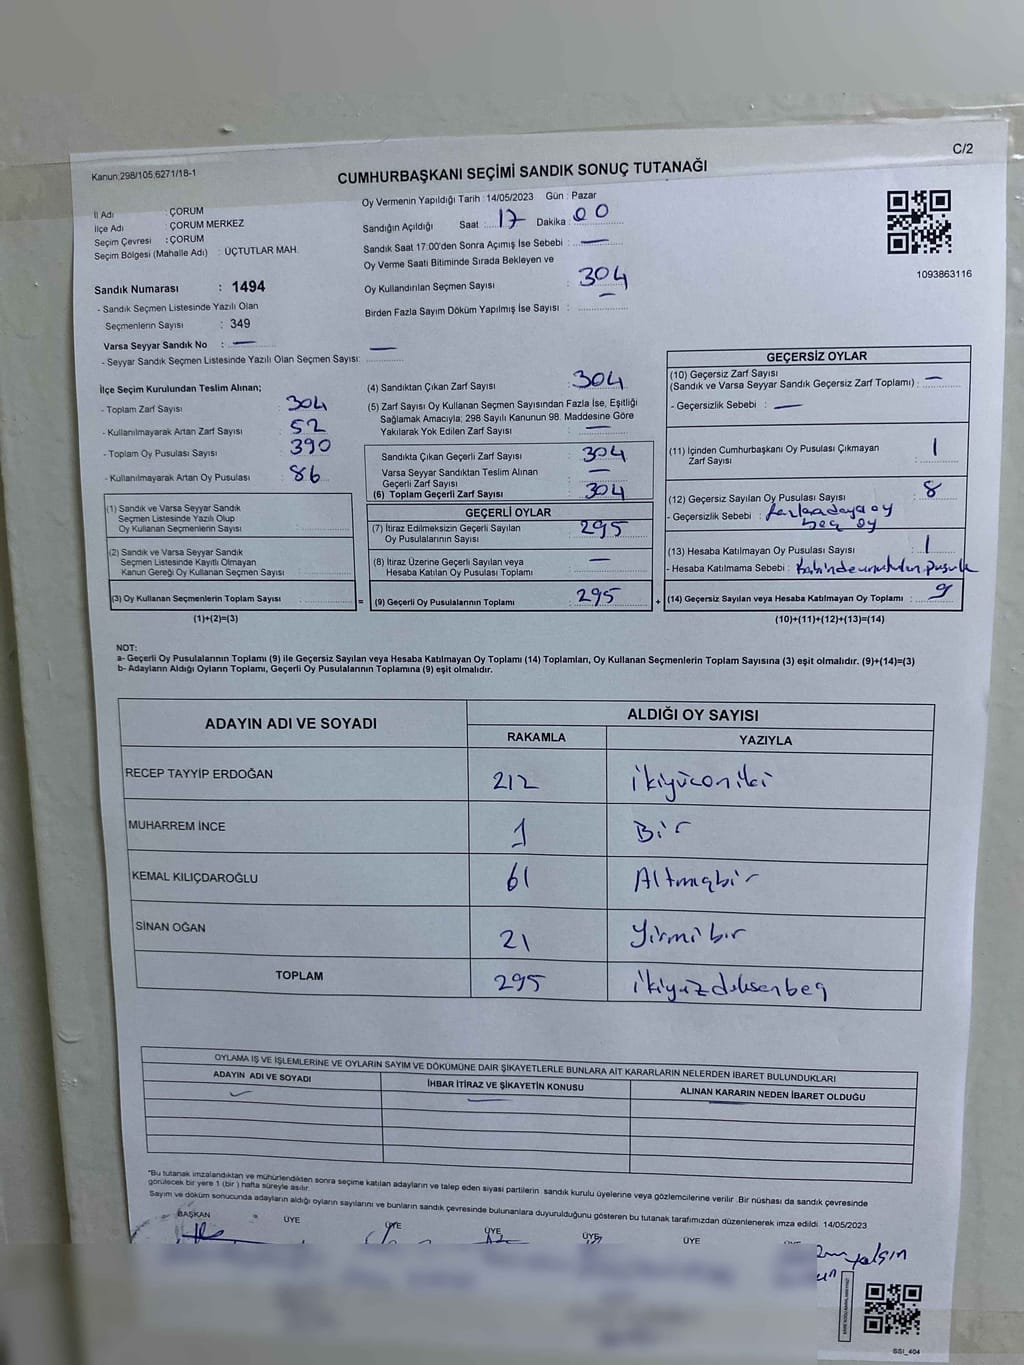 C/2
Kanun:298/105;6271/18-1
CUMHURBAŞKANI SEÇİMİ SANDIK SONUÇ TUTANAĞI
İl Adı : ÇORUM
İlçe Adı : ÇORUM MERKEZ
Seçim Çevresi : ÇORUM
Seçim Bölgesi (Mahalle Adı) : ÜÇTUTLAR MAH.
Sandık Numarası : 1494
- Sandık Seçmen Listesinde Yazılı Olan
Seçmenlerin Sayısı : 349
Varsa Seyyar Sandık No : —
- Seyyar Sandık Seçmen Listesinde Yazılı Olan Seçmen Sayısı: —
Oy Vermenin Yapıldığı Tarih : 14/05/2023 Gün : Pazar
Sandığın Açıldığı Saat : 17 Dakika : 00
Sandık Saat 17:00'den Sonra Açımış İse Sebebi : —
Oy Verme Saati Bitiminde Sırada Bekleyen ve
Oy Kullandırılan Seçmen Sayısı : 304
Birden Fazla Sayım Döküm Yapılmış İse Sayısı : —
1093863116
İlçe Seçim Kurulundan Teslim Alınan;
- Toplam Zarf Sayısı 304
- Kullanılmayarak Artan Zarf Sayısı 52
- Toplam Oy Pusulası Sayısı 390
- Kullanılmayarak Artan Oy Pusulası 86
(1) Sandık ve Varsa Seyyar Sandık
Seçmen Listesinde Yazılı Olup
Oy Kullanan Seçmenlerin Sayısı :
(2) Sandık ve Varsa Seyyar Sandık
Seçmen Listesinde Kayıtlı Olmayan
Kanun Gereği Oy Kullanan Seçmen Sayısı :
(3) Oy Kullanan Seçmenlerin Toplam Sayısı : =
(1)+(2)=(3)
(4) Sandıktan Çıkan Zarf Sayısı : 304
(5) Zarf Sayısı Oy Kullanan Seçmen Sayısından Fazla İse, Eşitliği
Sağlamak Amacıyla; 298 Sayılı Kanunun 98. Maddesine Göre
Yakılarak Yok Edilen Zarf Sayısı : —
Sandıkta Çıkan Geçerli Zarf Sayısı : 304
Varsa Seyyar Sandıktan Teslim Alınan
Geçerli Zarf Sayısı : —
(6) Toplam Geçerli Zarf Sayısı : 304
GEÇERLİ OYLAR
(7) İtiraz Edilmeksizin Geçerli Sayılan
Oy Pusulalarının Sayısı : 295
(8) İtiraz Üzerine Geçerli Sayılan veya
Hesaba Katılan Oy Pusulası Toplamı : —
(9) Geçerli Oy Pusulalarının Toplamı : 295 +
GEÇERSİZ OYLAR
(10) Geçersiz Zarf Sayısı
(Sandık ve Varsa Seyyar Sandık Geçersiz Zarf Toplamı) : —
- Geçersizlik Sebebi : —
(11) İçinden Cumhurbaşkanı Oy Pusulası Çıkmayan
Zarf Sayısı : 1
(12) Geçersiz Sayılan Oy Pusulası Sayısı : 8
- Geçersizlik Sebebi : oy
boş oy
(13) Hesaba Katılmayan Oy Pusulası Sayısı : 1
- Hesaba Katılmama Sebebi : Kabinde unutulan pusula
(14) Geçersiz Sayılan veya Hesaba Katılmayan Oy Toplamı : 9
(10)+(11)+(12)+(13)=(14)
NOT:
a- Geçerli Oy Pusulalarının Toplamı (9) ile Geçersiz Sayılan veya Hesaba Katılmayan Oy Toplamı (14) Toplamları, Oy Kullanan Seçmenlerin Toplam Sayısına (3) eşit olmalıdır. (9)+(14)=(3)
b- Adayların Aldığı Oyların Toplamı, Geçerli Oy Pusulalarının Toplamına (9) eşit olmalıdır.
ADAYIN ADI VE SOYADI ALDIĞI OY SAYISI
RAKAMLA YAZIYLA
RECEP TAYYİP ERDOĞAN 212 ikiyüzoniki
MUHARREM İNCE 1 Bir
KEMAL KILIÇDAROĞLU 61 Altmışbir
SİNAN OĞAN 21 Yirmi bir
TOPLAM 295 ikiyüzdoksanbeş
OYLAMA İŞ VE İŞLEMLERİNE VE OYLARIN SAYIM VE DÖKÜMÜNE DAİR ŞİKAYETLERLE BUNLARA AİT KARARLARIN NELERDEN İBARET BULUNDUKLARI
ADAYIN ADI VE SOYADI İHBAR İTİRAZ VE ŞİKAYETİN KONUSU ALINAN KARARIN NEDEN İBARET OLDUĞU
*Bu tutanak imzalandıktan ve mühürlendikten sonra seçime katılan adayların ve talep eden siyasi partilerin sandık kurulu üyelerine veya gözlemcilerine verilir. Bir nüshası da sandık çevresinde
görülecek bir yere 1 (bir) hafta süreyle asılır.
Sayım ve döküm sonucunda adayların aldığı oyların sayılarını ve bunların sandık çevresinde bulunanlara duyurulduğunu gösteren bu tutanak tarafımızdan düzenlenerek imza edildi. 14/05/2023
BAŞKAN ÜYE ÜYE ÜYE ÜYE ÜYE
yalçın
SSI_404